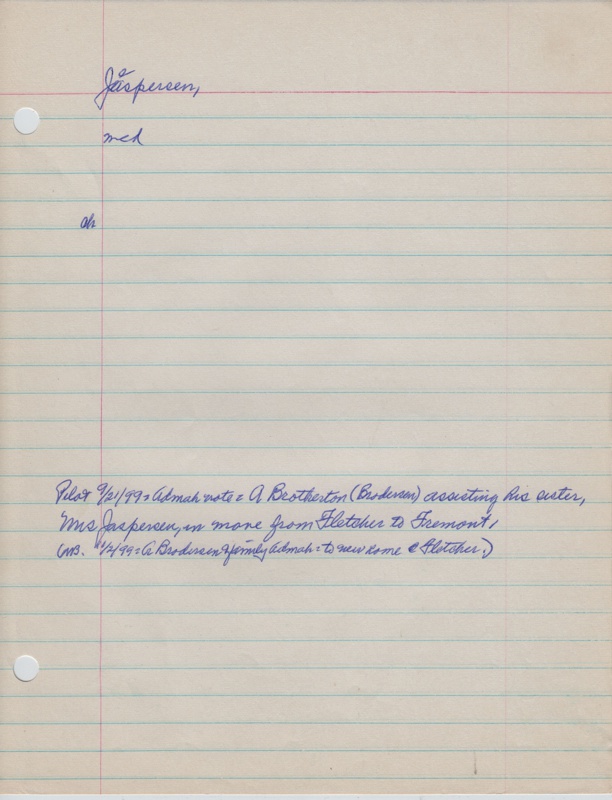 Jaspersen,
med
ch
Pilot 9/21/99 = Admah note = A Brotherton (Brodersen) assisting his sister,
Mrs Jaspersen, in move from Fletcher to Fremont.
(NB. 11/2/99 = A Brodersen & family Admah = to new home @ Fletcher.)